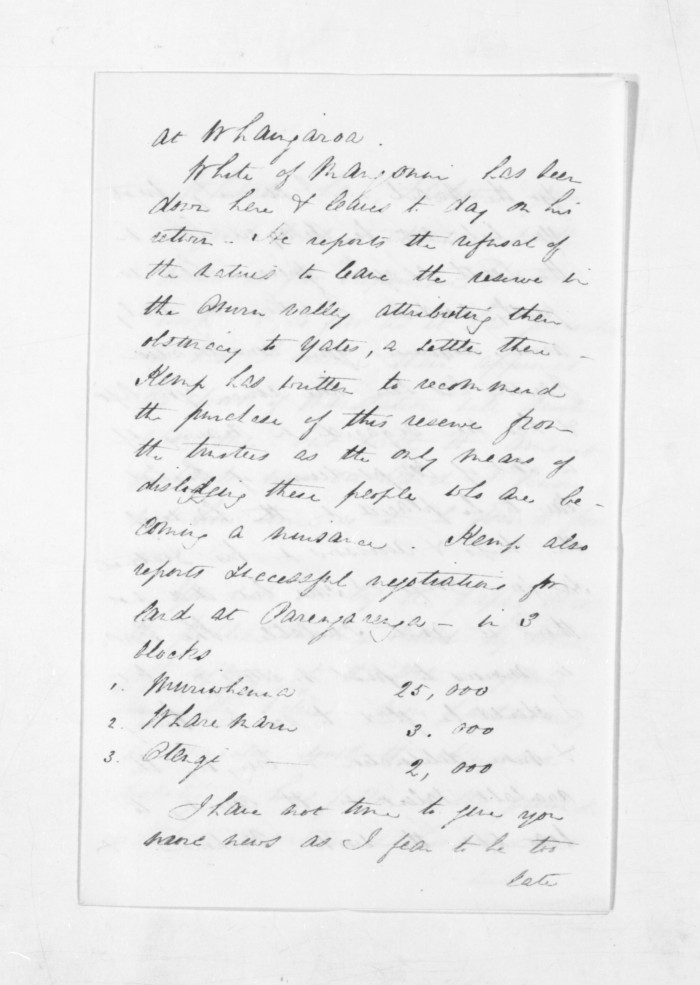 at Whangaroa.
White of Mangonui has been
down here & leaves to day on his
return. He reports the refusal of
the natives to leave the reserve in
the Oruru valley attributing their
obstinacy to Yates, a settler there -
Kemp has written to recommend
the purchase of this reserve from
the trustees as the only means of
dislodging these people who are be-
coming a nuisance. Kemp also
reports successful negotiations for
land at Parengarenga - in 3
blocks
1. Muriwhenua 25,000
2. Whare Maru 3.000
3. 2,000
I have not time to give you
more news as I fear to be too
late